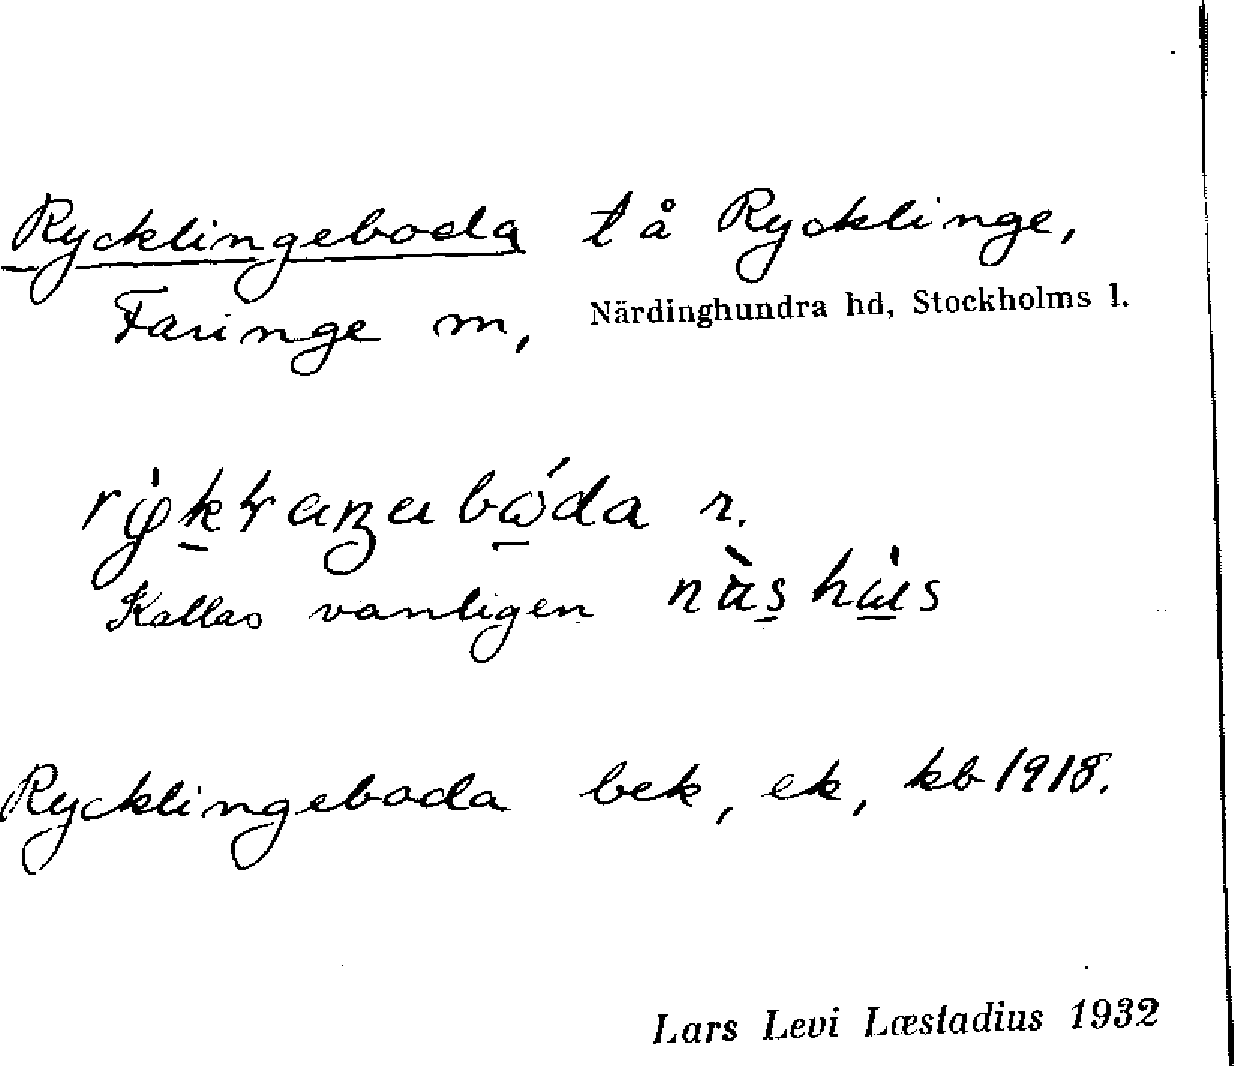 Ryckling­eboda t å Rycklinge,
Faringe m, Närdinghundra hd, Stockholms l.
r.
Kallas vanligen
Rycklingeboda bek, ek, kb 1918.
Lars Levi Læstadius 1932